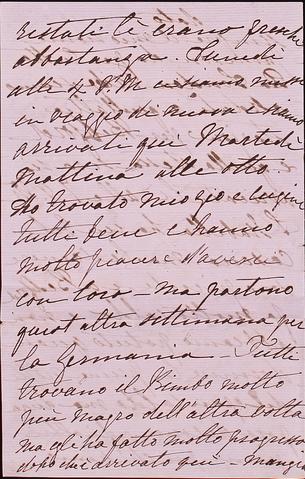 restati lì erano fresche
abbastanza. Lunedì
alle 4 P.M ci siamo messi
in viaggio di nuovo e siamo
arrivate qui Martedì
Mattina alle otto.
Ho trovato mio zio e
tutti bene e hanno
molto piacere d'averci
con loro - ma partono
quest'altra settimana per
la Germania - Tutti
trovano il Bimbo molto
più magro dell'altra volta
ma egli ha fatto molto progresso
dopo che è arrivato qui - mangia